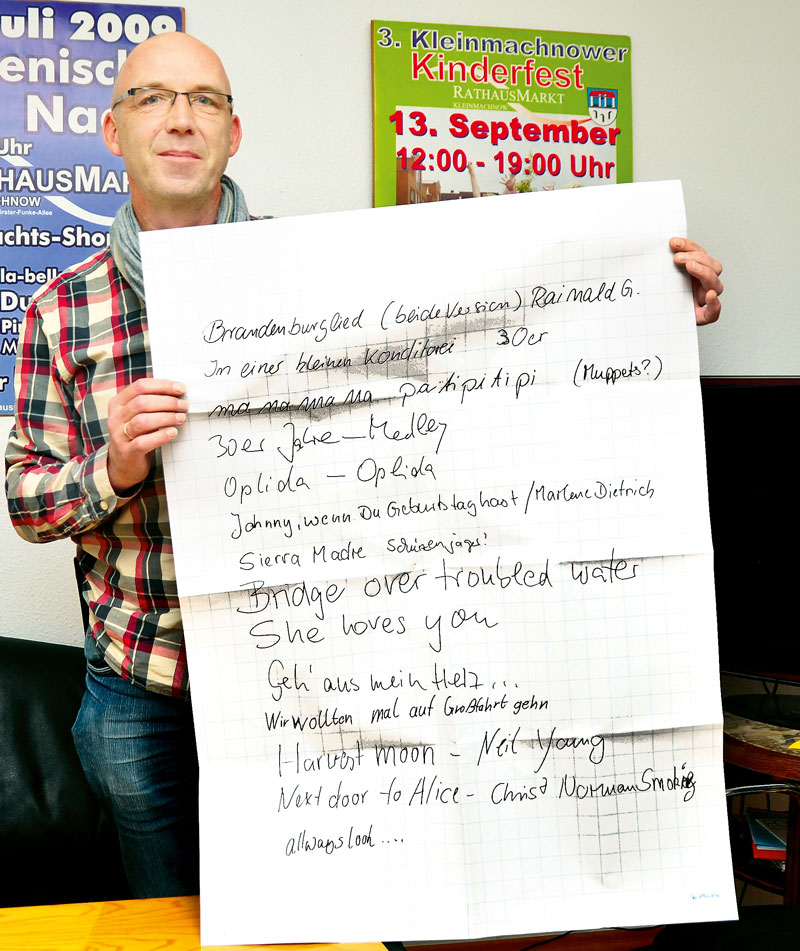 uli 2009
enisch
Na
Uhr
HAUSMAR
NOW
örster-Funke-Allee
achts-Shop
la-bella
Du
Pi
M
r
3. Kleinmachnower
Kinderfest
RATHAUSMARKT
KLEINMACHNOW
13. September
12:00 - 19:00 Uhr
Brandenburglied (beide Version) Rainald G.
In einer kleinen Konditorei 30er
ma na ma na patipitipi (Muppets?)
30er Jahre - Medley
Oplida - Oplida
Johnny, wenn Du Geburtstag hast / Marlene Dietrich
Sierra Madre Schürzenjäger!
Bridge over troubled water
She loves you
Geh' aus mein Herz...
Wir wollten mal auf Großfahrt gehn
Harvest moon - Neil Young
Next door to Alice - Chris Norman Smokie
allways look ....